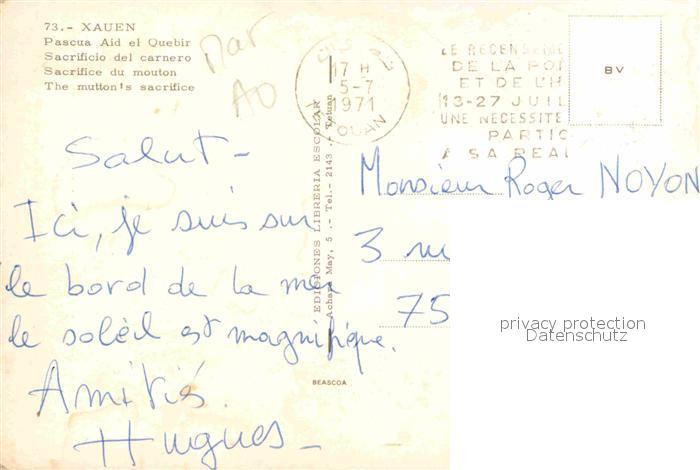 73.- XAUEN
Pascua Aid el Quebir
Sacrificio del carnero
Sacrifice du mouton
The mutton's sacrifice
Mar
AO
17 H
5-7
1971
LE RECENSEME
DE LA PO
ET DE L'H
13-27 JUIL
UNE NECESSITE
PARTIC
A SA REAL
BV
Salut -
Ici, je suis sur
le bord de la mer
le soleil est magnifique.
Amitiés.
Hugues -
EDICIONES LIBRERIA ESCOLAR
Achara May, 5 .- Tel.- 2143 .- Tetuan
BEASCOA
Monsieur Roger NOYON
3 ru
75
privacy protection
Datenschutz